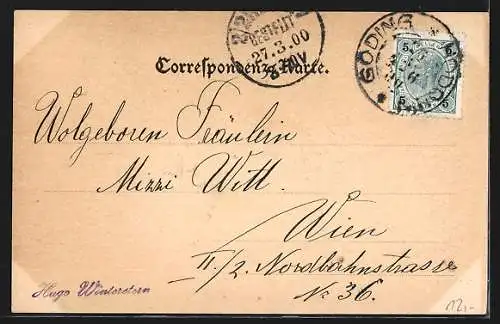 BESTELLT
27.3.00
GÖDING
5 5
5 5
Correspondenz-Karte.
Wolgeboren Fräulein
Mizzi Witt.
Wien
II./2. Nordbahnstrasse
No 36.
Hugo Winterstern
12,-